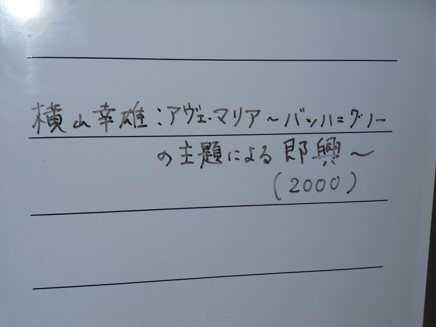 横山幸雄:アヴェ・マリア〜バッハ=グノー
の主題による即興〜
(2000)